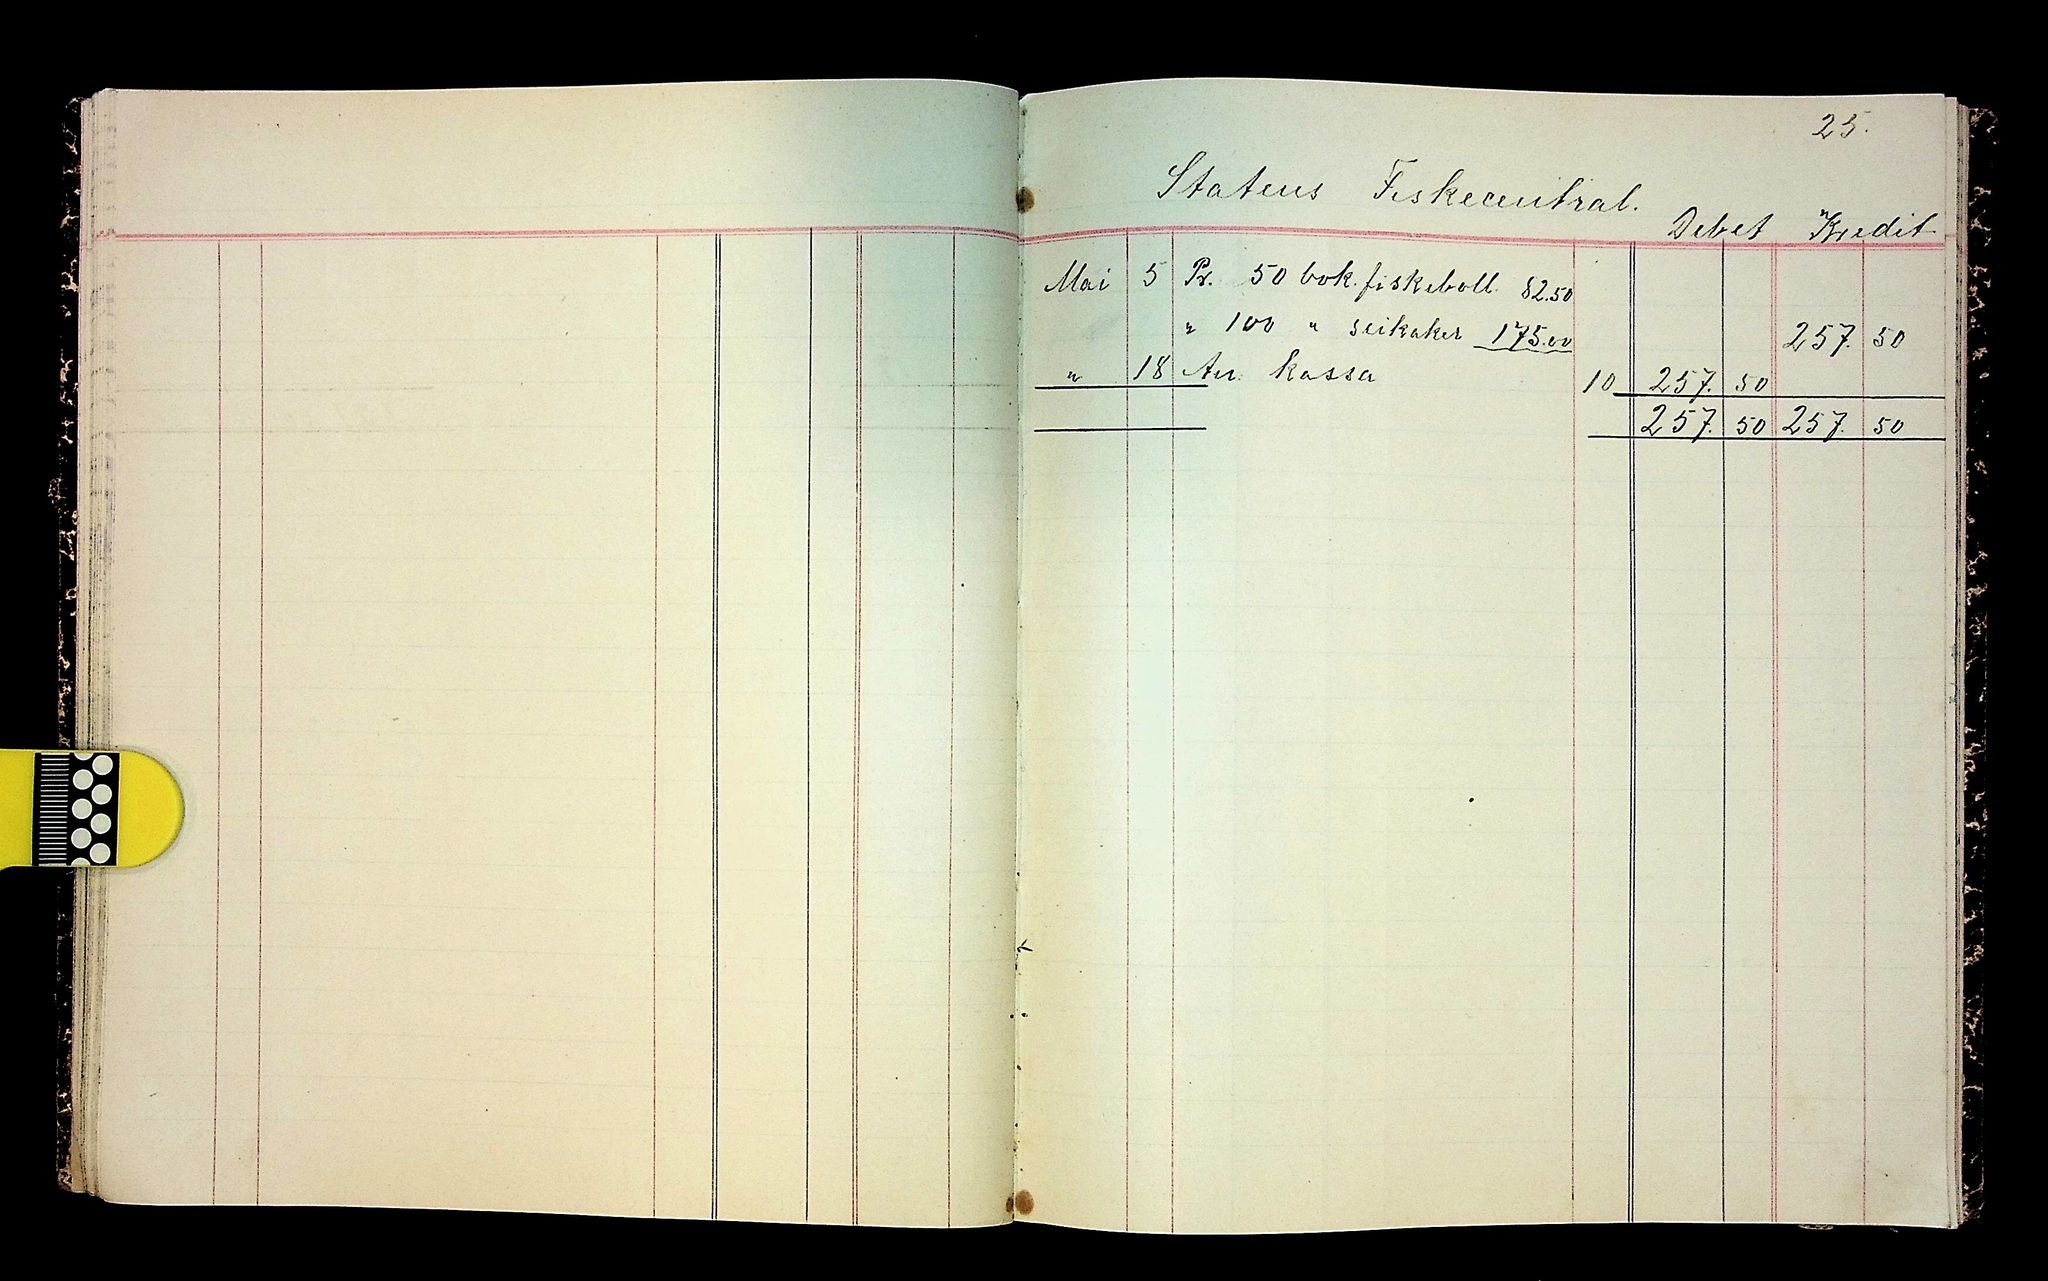 25.
Statens Fiskecentral.
Debet Kredit
Mai 5 Pr. 50 bok. fiskeboll. 82.50
" 100 " seikaker 175.00 257. 50
" 18 An kassa 10 257. 50
257. 50 257. 50